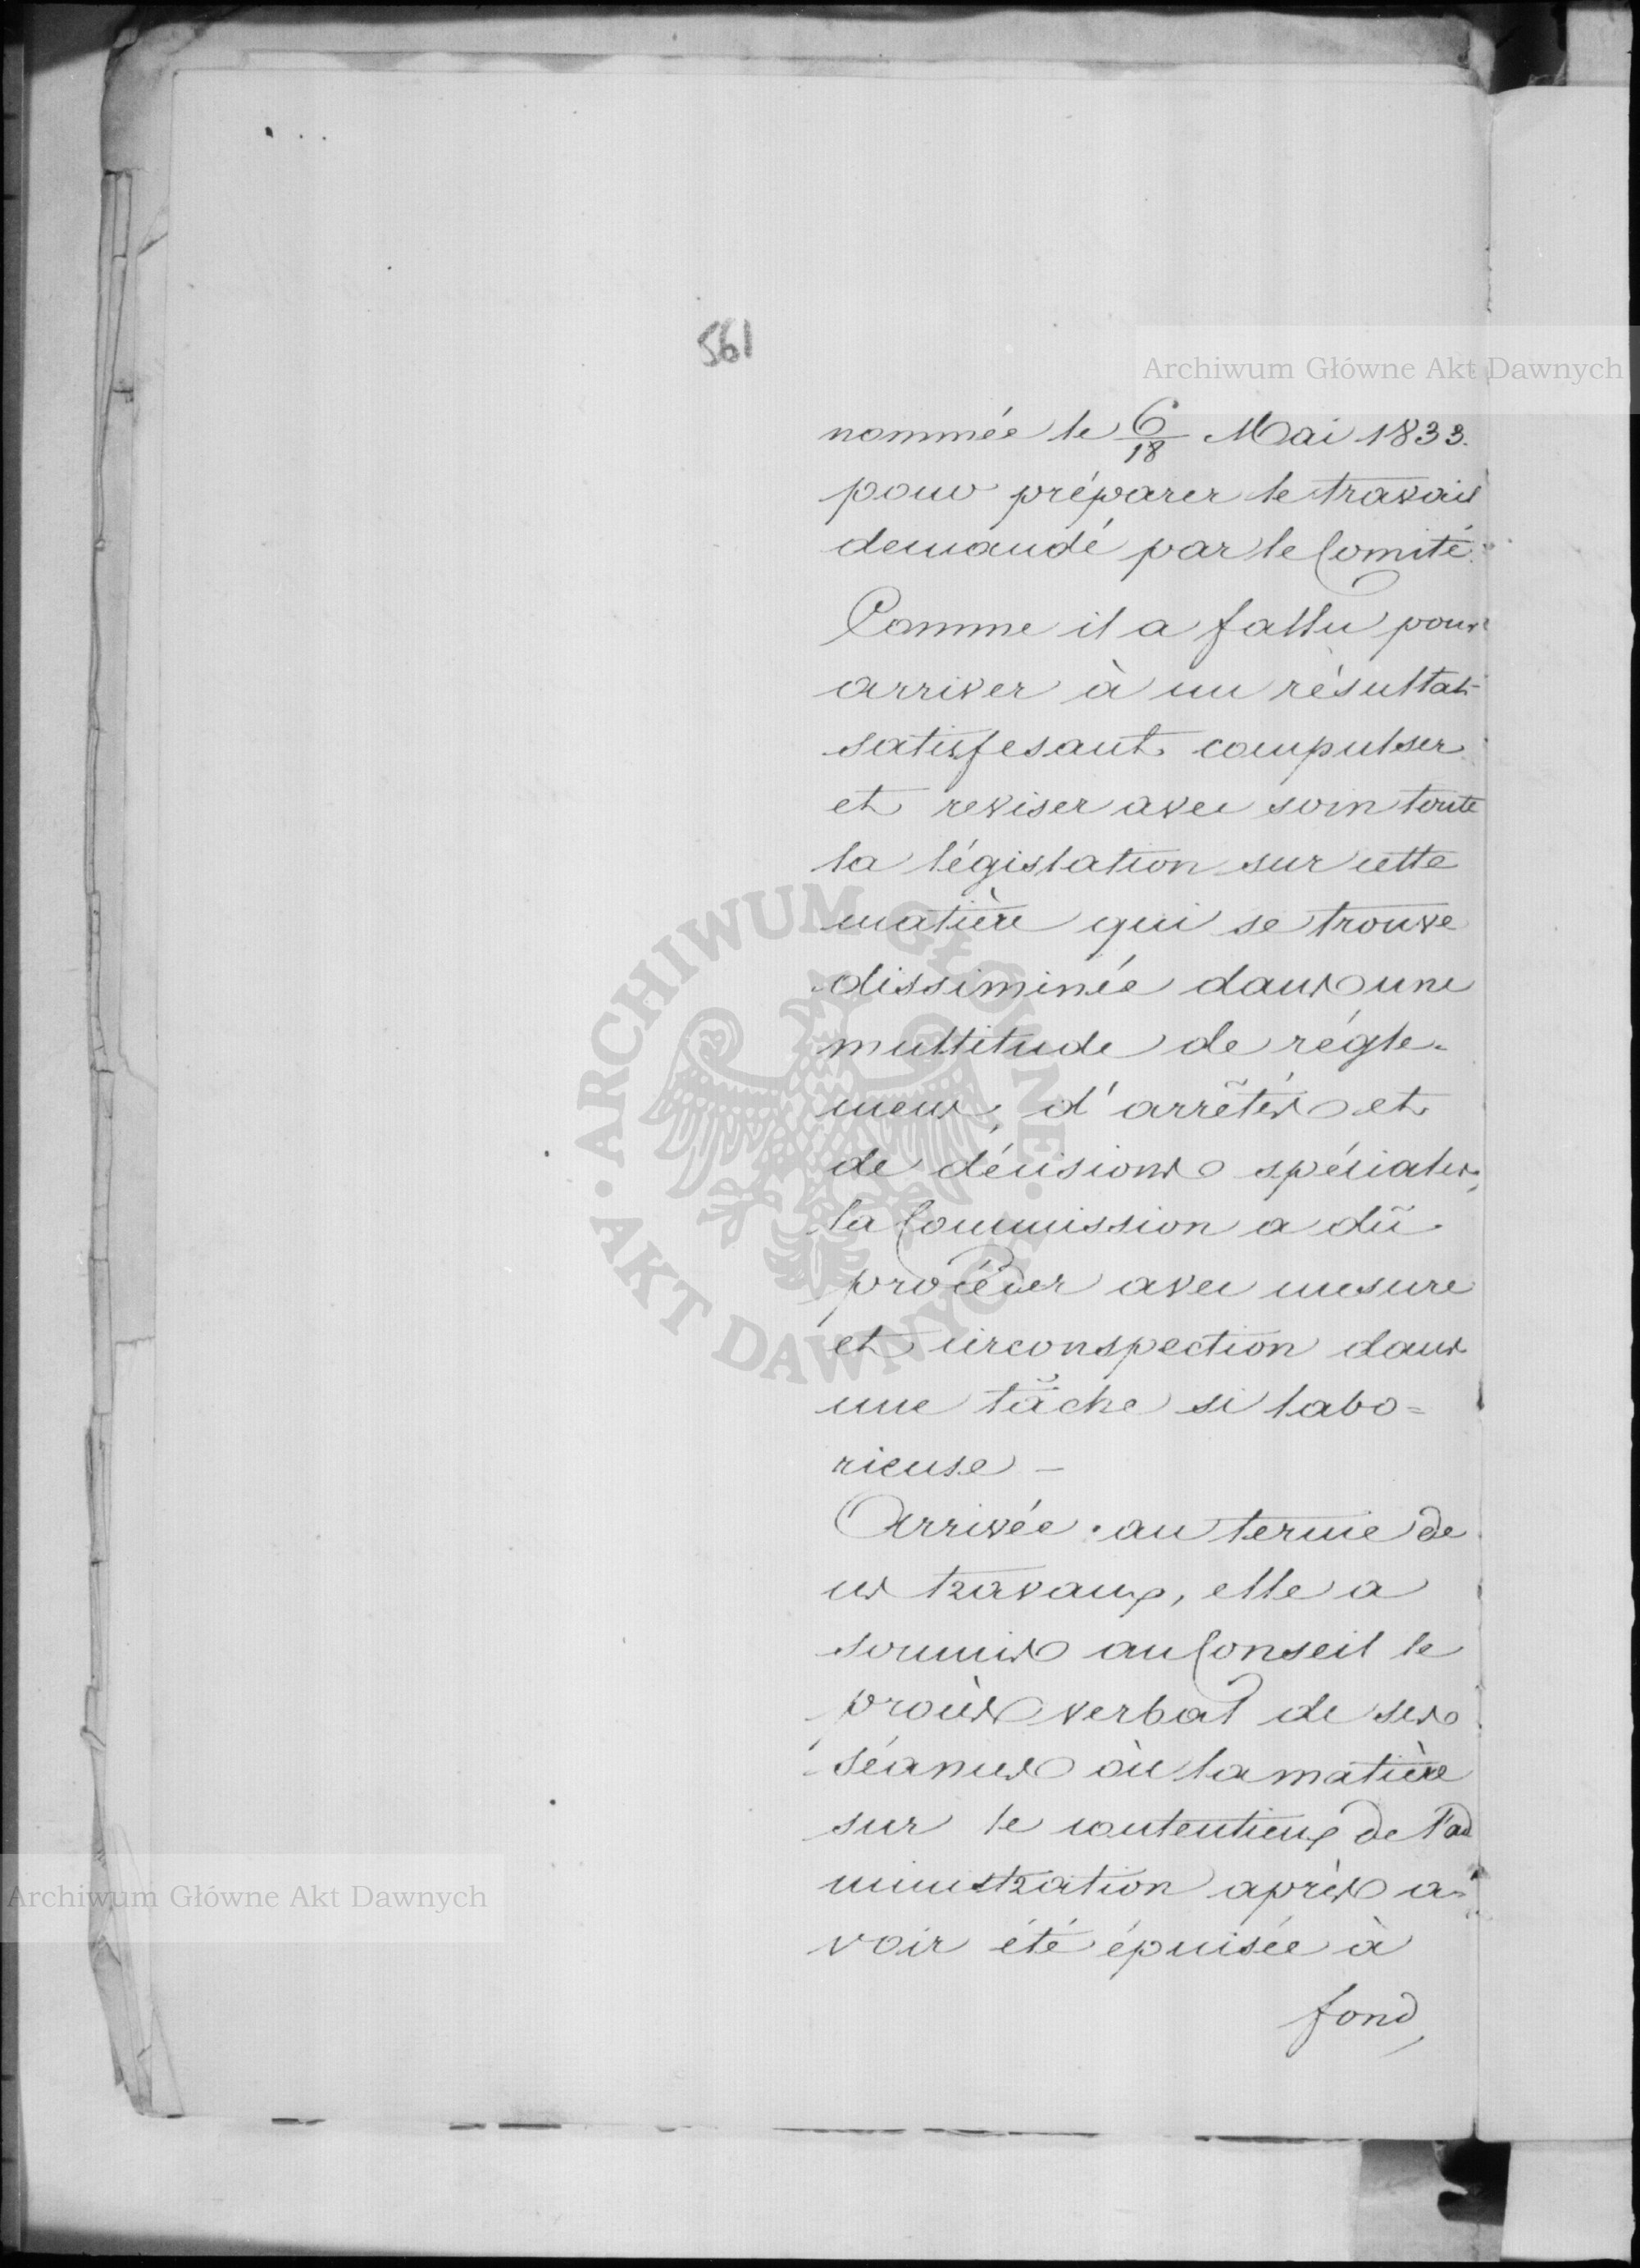 561
Archiwum Główne Akt Dawnych
nommée le 6/18 Mai 1833.
pour préparer le travail
demandé par le Comité.
Comme il a fallu pour
arriver à un résultat
satisfesant compulser
et reviser avec soin toute
la législation sur cette
matière qui se trouve
dissiminée dans une
multitude de régle-
mens, d'arrêtés et
de décisions spéciales,
la Commission a dû
procéder avec mesure
et circonspection dans
une tâche si labo=
rieuse —
Arrivée au terme de
ces travaux, elle a
soumis au Conseil le
procès verbal de ses
séances où la matière
sur le contentieux de l'ad
ministration après a-
voir été épuisée à
fond
ARCHIWUM GŁÓWNE
AKT DAWNYCH
Archiwum Główne Akt Dawnych